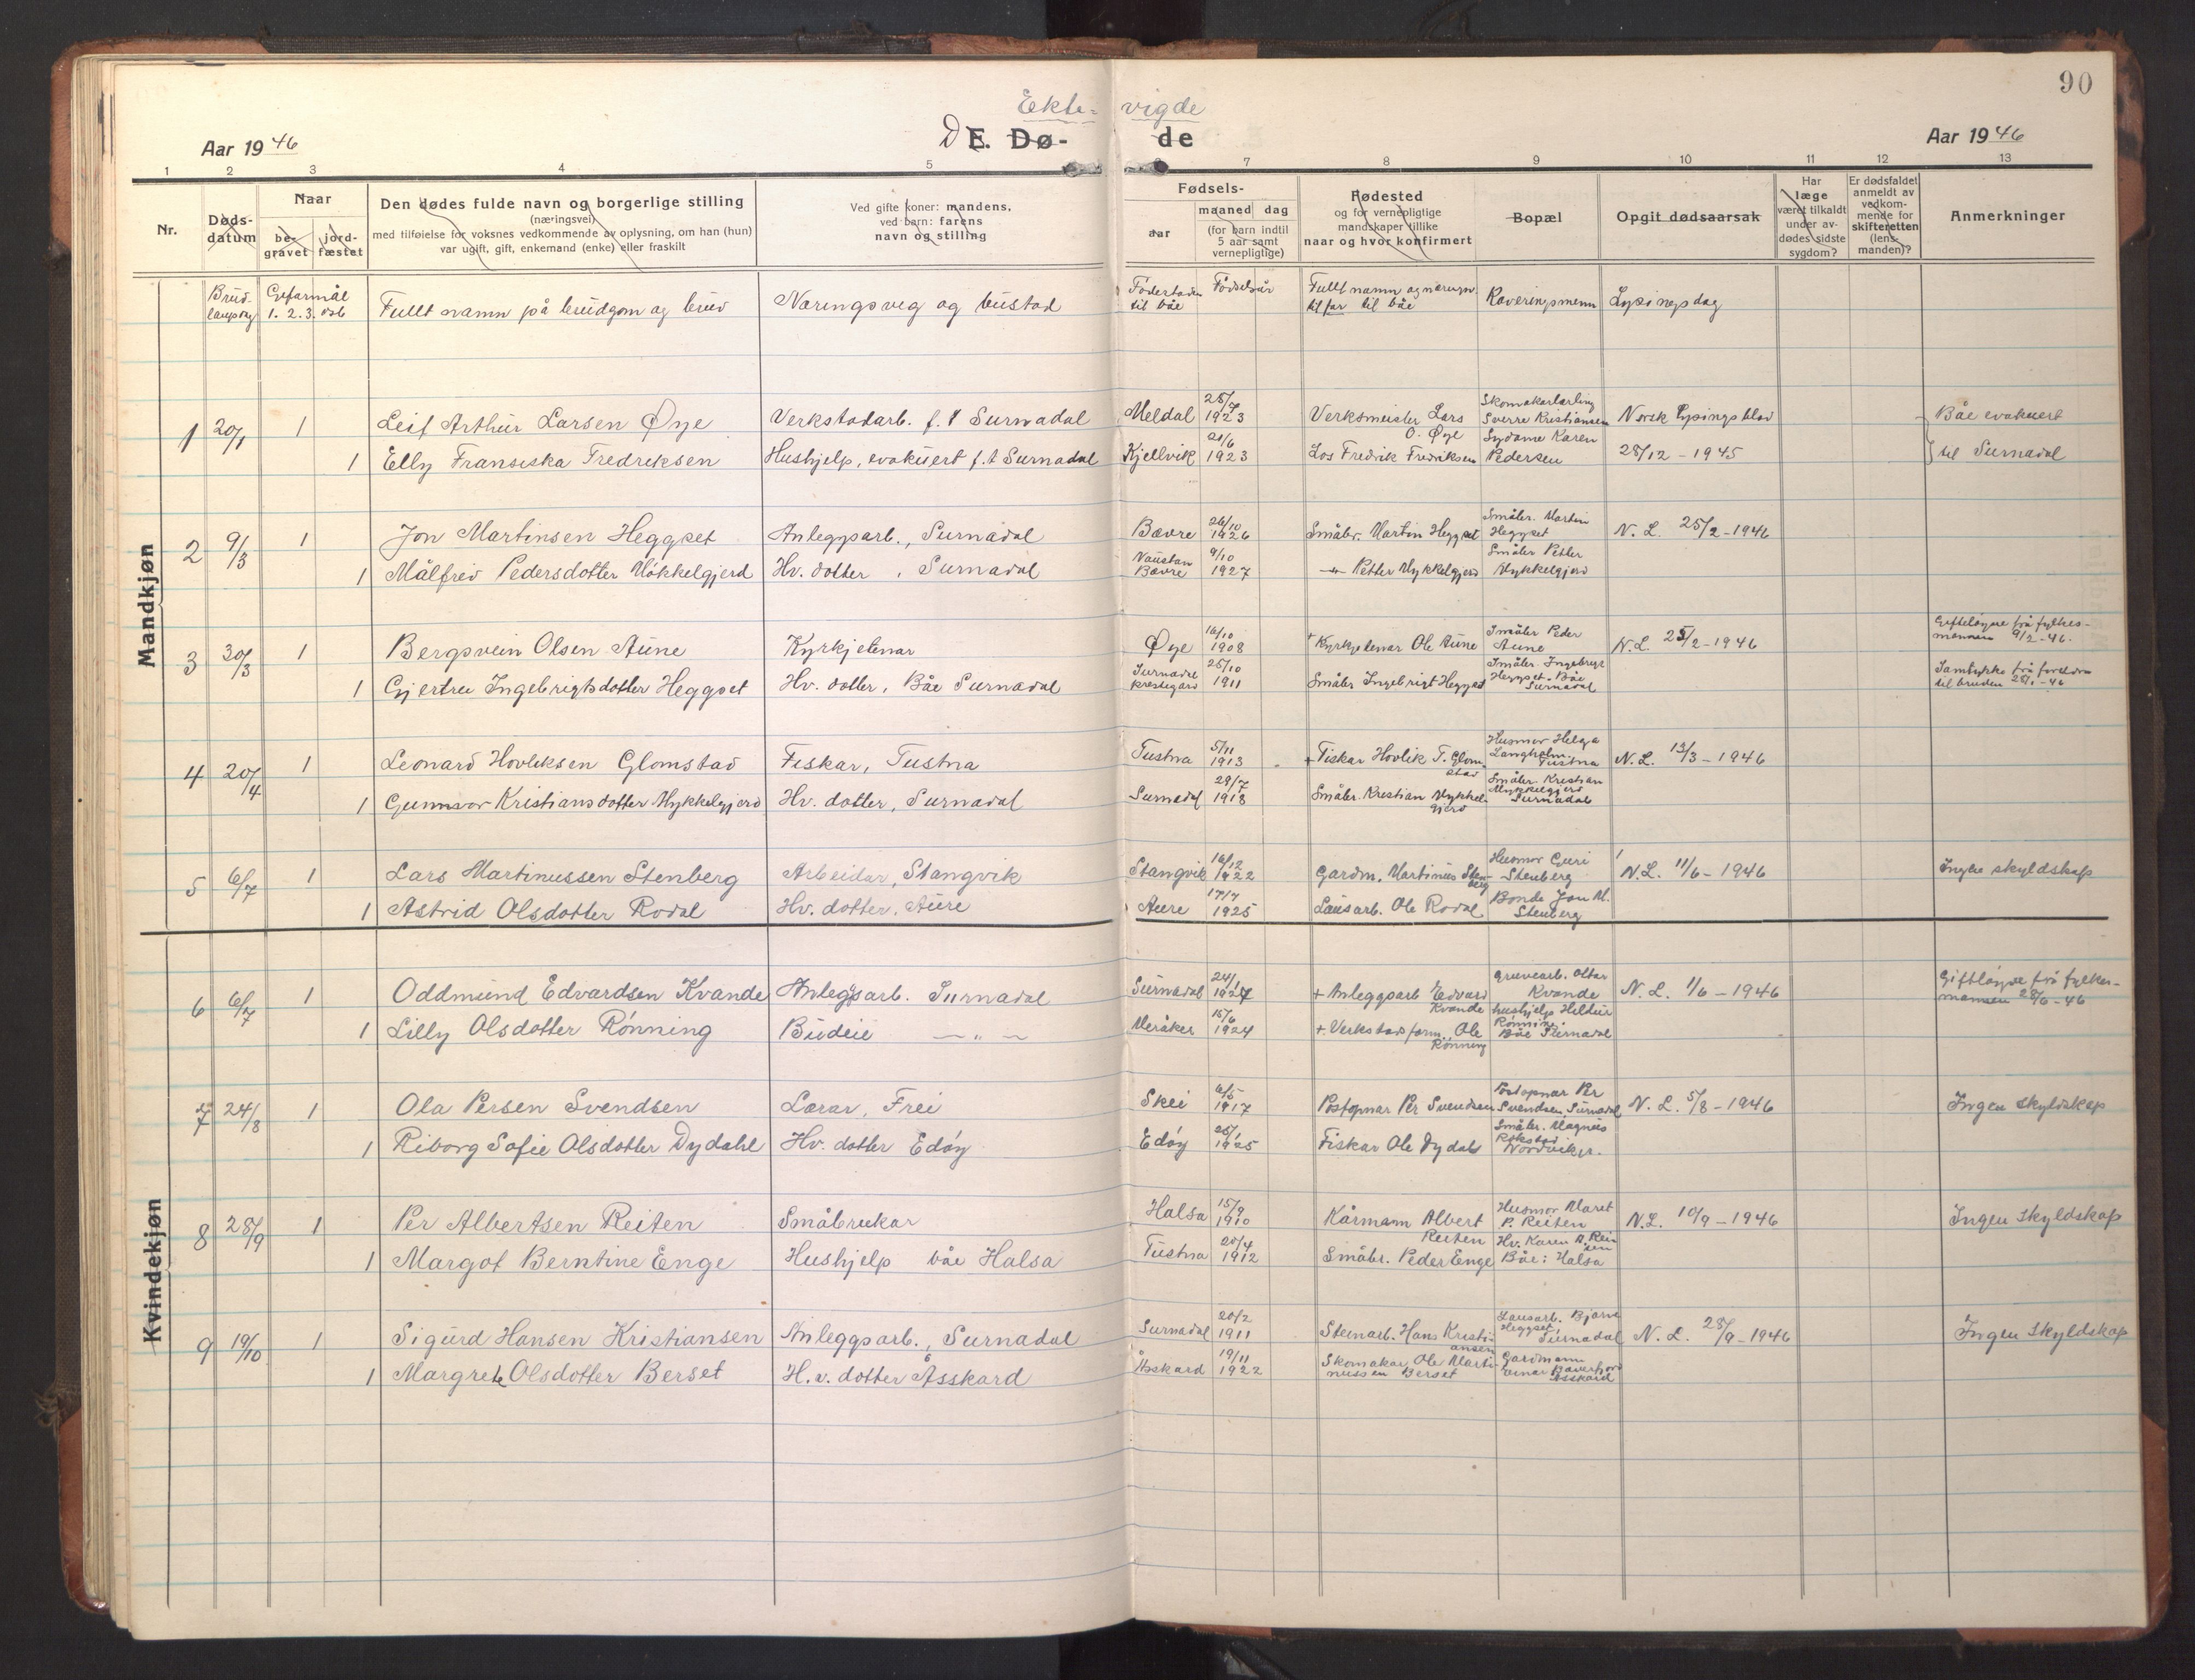 90
Ekte- vigde
Aar 1946 D E. Dø- de Aar 1946
1 2 3 4 5 7 8 9 10 11 12 13
Nr.
Døds-
datum
Naar
be-
gravet
jord-
fæstet
Den dødes fulde navn og borgerlige stilling
(næringsvei)
med tilføielse for voksnes vedkommende av oplysning, om han (hun)
var ugift, gift, enkemand (enke) eller fraskilt
Ved gifte koner: mandens,
ved barn: farens
navn og stilling
Fødsels-
aar
maaned dag
(for barn indtil
5 aar samt
vernepligtige)
Fødested
og for vernepligtige
mandskaper tillike
naar og hvor konfirmert
Bopæl
Opgit dødsaarsak
Har
læge
været tilkaldt
under av-
dødes sidste
sygdom?
Er dødsfaldet
anmeldt av
vedkom-
mende for
skifteretten
(lens-
manden)?
Anmerkninger
Brud-
laupsdag
Giftarmål
1. 2. 3.
Fullt namn på brudgom og brud
Næringsveg og bustad
Fødestaden
til båe
Fødselsår
Fullt namn og næringsv.
til far til båe
Kaveringsmenn
Lysingsdag
Mandkjøn
1 20/1 1 Leif Arthur Larsen Øye Verkstadarb. f. t Surnadal Meldal 25/7 1923 Verksmeister Lars O. Øye Skomakarlærling Sverre Kristiansen Norsk Lysingsblad Båe evakuert
1 Elly Fransiska Fredriksen Hushjelp, evakuert f. t Surnadal Kjellvik 21/6 1923 Los Fredrik Fredriksen Sydame Karen Pedersen 28/12 - 1945 til Surnadal
2 9/3 1 Jon Martinsen Heggset Anleggsarb., Surnadal Bævre 26/10 1926 Småbr. Martin Heggset Småbr. Martin Heggset N. L. 25/2 - 1946
1 Målfrid Pedersdotter Møkkelgjerd Hv. dotter, Surnadal Naustan Bævre 9/10 1927 -"- Petter Mykkelgjerd Småbr Petter Mykkelgjerd
3 30/3 1 Bergsvein Olsen Aune Kyrkjetenar Øye 16/10 1908 + Kyrkjetenar Ole Aune Småbr Peder Aune N. L. 25/2 - 1946 Gifteløyve frå fylkes-
mannen 9/2 - 46.
1 Gjertru Ingebrigtsdotter Heggset Hv. dotter, Båe Surnadal Surnadal prestegard 25/10 1911 Småbr Ingebrigt Heggset Småbr. Ingebrigt Heggset. Båe Surnadal Samtykke frå foreldra
til bruden 28/1 - 46
4 20/4 1 Leonard Hovliksen Glomstad Fiskar, Tustna Tustna 5/11 1913 + Fiskar Hovlik T. Glomstad Husmor Helga Langholm Tustna N. L. 13/3 - 1946
1 Gunnvor Kristiansdotter Mykkelgjerd Hv. dotter, Surnadal Surnadal 29/7 1918 Småbr. Kristian Mykkelgjerd Småbr. Kristian Mykkelgjerd Surnadal
5 6/7 1 Lars Martinussen Stenberg Arbeidar, Stangvik Stangvik 16/12 1922 Gardm. Martinus Stenberg Husmor Guri Stenberg N. L. 11/6 - 1946 Ingen skyldskap
1 Astrid Olsdotter Rodal Hv. dotter, Aure Aure 17/7 1925 Lausarb. Ole Rodal Bonde Jon M. Stenberg
Kvindekjøn
6 6/7 1 Oddmund Edvardsen Kvande Anleggsarb. Surnadal Surnadal 24/1 1927 + Anleggsarb Edvard Kvande Gruvearb. Oltar Kvande N. L. 1/6 - 1946 Giftløyve frå fylkes-
mannen 28/6 - 46
1 Lilly Olsdotter Rønning Budeie - " - Meråker 15/6 1924 + Verkstadform. Ole Rønning hushjelp Hildur Rønning Båe Surnadal
7 24/8 1 Ola Persen Svendsen Lærar, Frei Skei 6/5 1917 Postopnar Per Svendsen Postopnar Per Svendsen, Surnadal N. L. 5/8 - 1946 Ingen skyldskap
1 Riborg Sofie Olsdotter Dydahl Hv. dotter Edøy Edøy 25/1 1925 Fiskar Ole Dydahl Småbr. Magnus Rokstad Nordvikjr.
8 28/9 1 Per Albertsen Reiten Småbrukar Halsa 15/9 1910 Kårmann Albert Reiten Husmor Maret P. Reiten N. L. 10/9 - 1946 Ingen skyldskap
1 Margot Berntine Enge Hushjelp båe Halsa Tustna 20/4 1912 Småbr. Peder Enge Hv. Karen A. Reiten Båe: Halsa
9 19/10 1 Sigurd Hansen Kristiansen Anleggsarb., Surnadal Surnadal 20/2 1911 Steinarb. Hans Kristiansen Lausarb. Bjarne Heggset, Surnadal N. L. 28/9 - 1946 Ingen skyldskap
1 Margrete Olsdotter Berset H. v. dotter Åsskard Åsskard 19/11 1922 Skomakar Ole Martinussen Berset Gardmann Einar Bæverfjord Åsskard